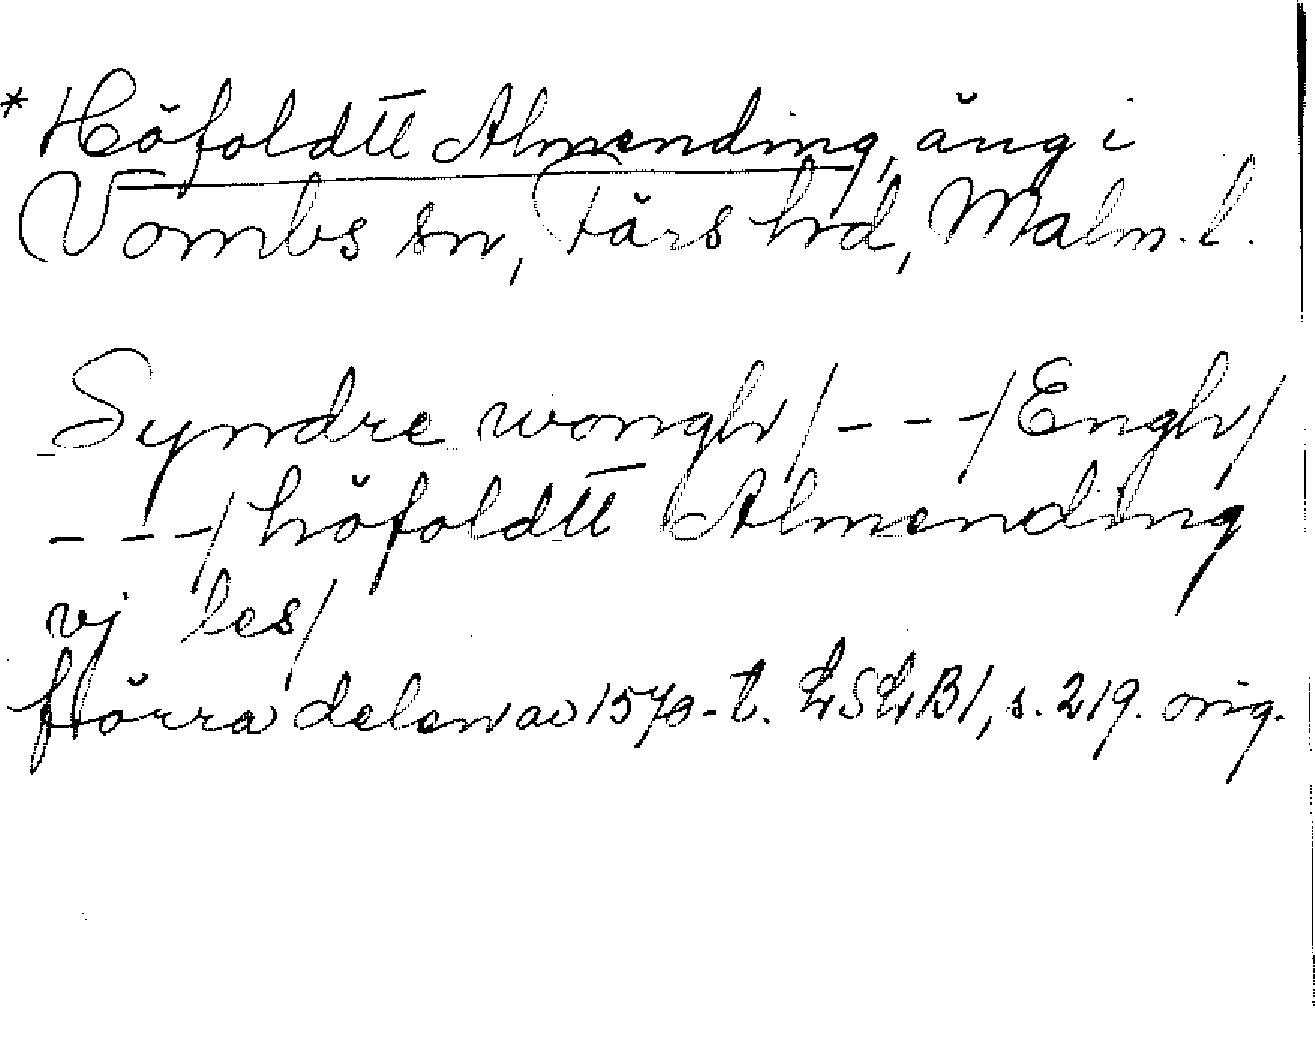 * Höfoldtt Almending, äng i
Vombs sn, Färs hrd, Malm. l.
Syndre wongh/---/Engh/
---/höfoldtt Almending
vj les/
förra delen av 1570-t. LSLB1, s. 219. orig.